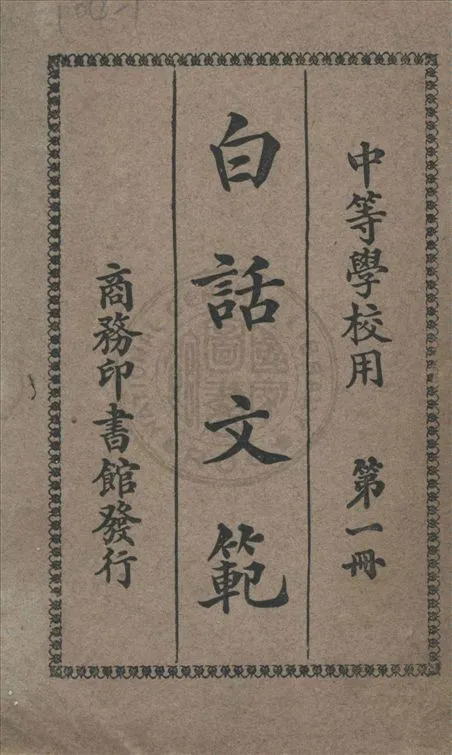 中等學校用 第一冊
白話文範
商務印書館發行